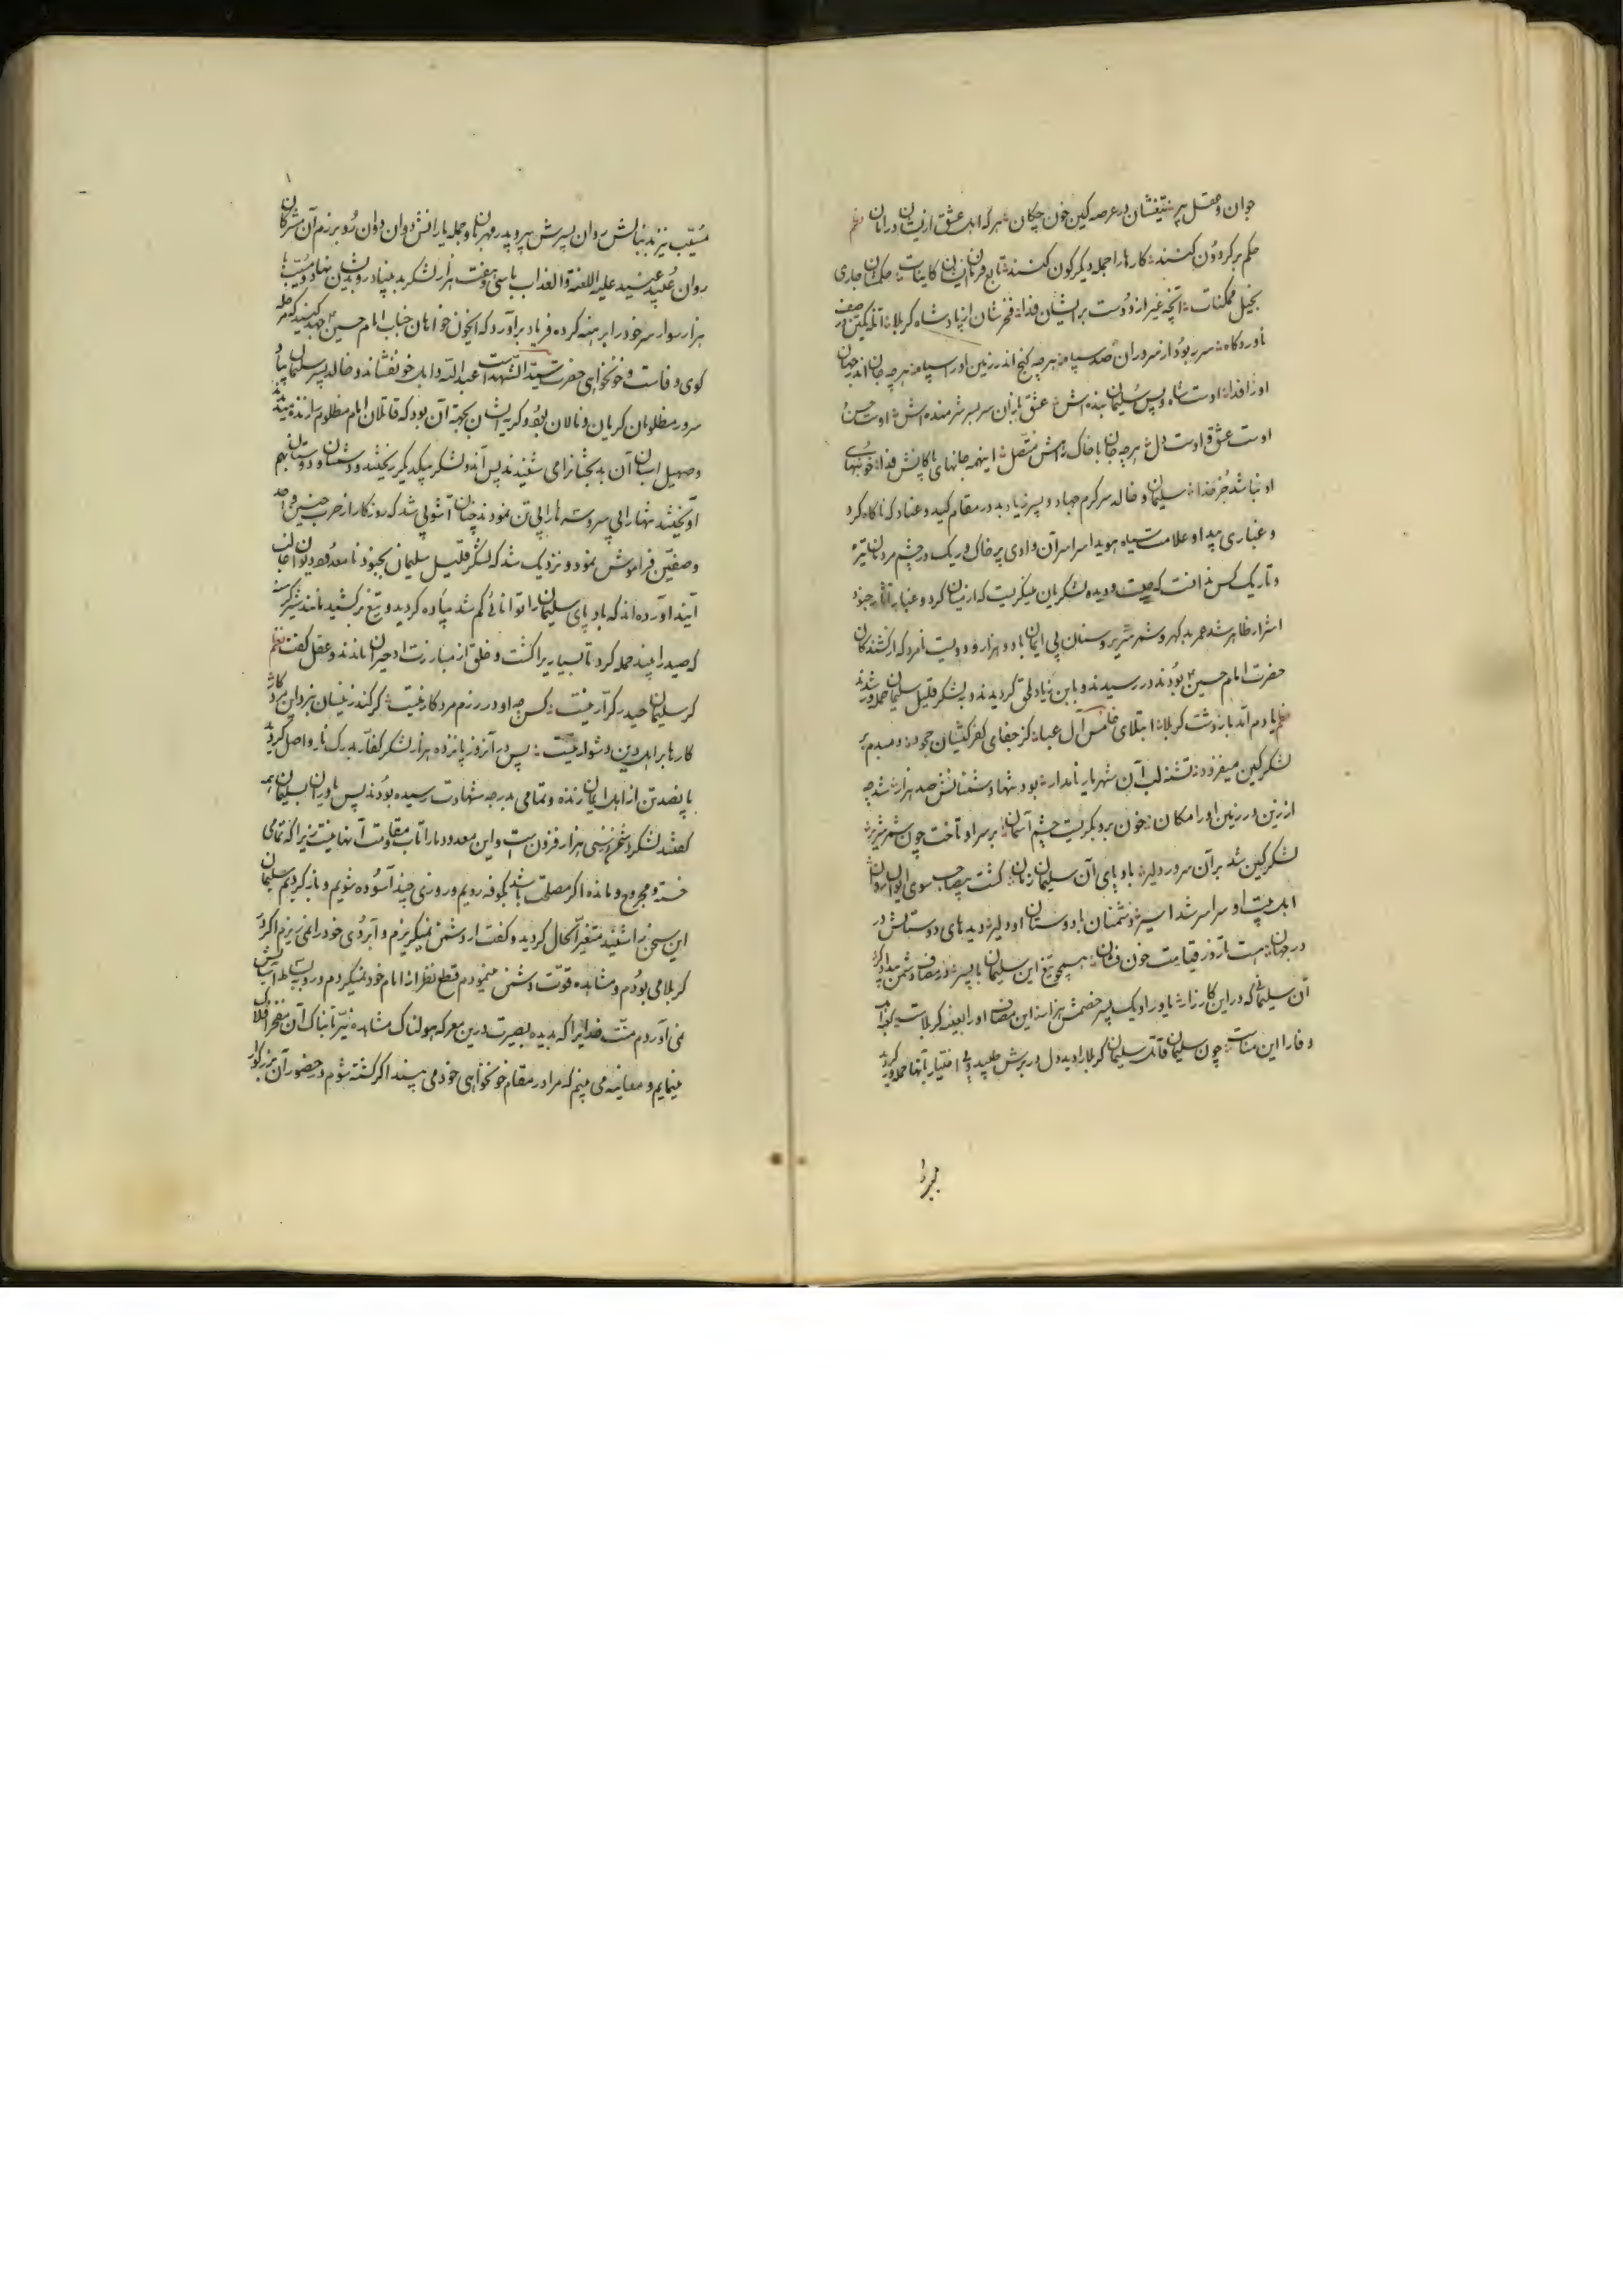 جوان و عقل پیر تیغشان در عرصه کین خون چکان هرکه اهل عشق ازیشان در امان نظم
حکم بر گردون کنند کارها را جمله دیگرگون کنند تابع فرمان ایشان کاینات حکمشان جاری
بخیل ممکنات آنچه غیر از دوست بر ایشان فدا فخرشان از پادشاه کربلا
ناوردگاه سرور بود از سروران صد سپاه هرچه گنج اندر زمین او را سپاه هرچه جان اندر جهان
او را فدا اوست شاه و پس سلیمان بنده‌اش عشق بازان سربسر شرمنده‌اش اوست حسن
اوست عشق و اوست دل هرچه جان با خاک راهش متصل اینهمه جانهای پاکانش فدا خونبهای
او نباشد جز خدا سلیمان و خالد سرگرم جهاد و پسر زیاد بد در مقام کید و عناد که ناگاه گرد
و غباری پیدا و علامت سیاه هویدا سراسر آن وادی پر خاک و ریک در چشم مردمان تیره
و تاریک کس ندانست که چیست و دیده لشکریان میگریست که از میان گرد و غبار آثار جنود
اشرار ظاهر شد عمر بد گهر و شمر شریر و سنان بی ایمان با دو هزار و دویست نامرد که از کشندگان
حضرت امام حسین بودند در رسیدند و بابن زیاد ملحق گردیدند و بلشکر قلیل سلیمان حمله‌ور شدند
نظم یادم آمد باز دشت کربلا ابتلای خامس آل عبا کز جفای کفر کیشان جحود دمبدم بر
لشکر کین میفزود تشنه لب آن شهریار نامدار بود تنها دشمنانش صد هزار شد چه
از زین در زمین او را مکان خون برو بگریست چشم آسمان بر سر او تاخت چون شمر شریر
لشکر کین شد بر آن سرور دلیر باد پای آن سلیمان زمان گشت بیصاحب سوی ایوان روان
اهلبیت او سراسر شد اسیر دشمنان با دوستان او دلیر دیدهای دوستانش در
در جهان هست تا روز قیامت خون فشان همچو تیغ این سلیمان با پسر در مصاف دشمن
آن سلیمانی که در این کارزار یاور او یک پسر خصمش هزار این مصاف او را بعینه کربلاست
وفا را این مناست چون سلیمان قاتل سلیمان کربلا را دید دل در برش طپید و بی اختیار بآنها حمله‌ور گردید
مسیب نیز بدنبالش روان پسرش پیرو پدر مهربان و جمله یارانش دوان دوان رو برزم آن مشرکان
روان عبید عنید علیه اللعنة والعذاب با سی و هفت هزار لشکر بد بنیاد رو بدیشان نهاد و مسیب با
هزار سوار سر خود را برهنه کرده فریاد برآورد که ایخون خواهان جناب امام حسین جهد کنید که حمله
کوی وفاست و خونخواهی حضرت سید الشهداست عبدالله وال خونفشاند و خالد پسر سلیمان پیاد
سرور مظلومان گریان و نالان بود و گریه ایشان بجهة آن بود که قاتلان امام مظلوم را زنده میدیدند
و صهیل اسبان آن بدبختانرا می شنیدند پس آندو لشکر بیکدیگر ریختند و دشمنان و دوستان بهم
آویختند تنها را بی سر و سرها را بی تن نمودند چنان آشوبی شد که روزگار از حرب حنین و احد
و صفین فراموش نمود و نزدیک شد که لشکر قلیل سلیمان بجنود نامعدود دیوان غالب
آیند آورده‌اند که باد پای سلیمان را توانائی کم شد پیاده گردید و تیغ بر کشید مانند شیر گرسنه
که صید را بیند حمله کرد تا بسیاریرا کشت و خلق از مبارزت او حیران ماندند و عقل گفت نظم
گر سلیمان حیدر کرار نیست کس چه او در رزم مرد کار نیست گر کند زینسان نبرد این مرد کار
کارها بر اهل دین دشوار نیست پس در آنروز پانزده هزار لشکر کفار بدرک نار واصل گردید
پانصد تن از اهل ایمان زنده و تمامی بدرجه شهادت رسیده بودند پس یاوران بسلیمان
گفتند لشکر دشمن از سی هزار فزون است و این معدود ما را تاب مقاومت آنها نیست زیرا که تمامی
خسته و مجروح و مانده اگر مصلحت باشد بکوفه رویم و روزی چند آسوده شویم و باز گردیم سلیمان
این سخن را شنید متغیر الحال گردید و گفت از دشمن نمیگریزم و آبروی خود را نمی ریزم اگر در
کربلا می بودم و مشاهده قوت دشمن مینمودم قطع نظر از امام خود نمیکردم و رو به بساط آسایش
نمی آوردم منت خدایرا که بدیده بصیرت درین معرکه هولناک مشاهده نیر تابناک آن مفخر افلاک
مینمایم و معاینه می بینم که مرا در مقام خونخواهی خود می پسندد اگر کشته شوم در حضور آن بزرگوار